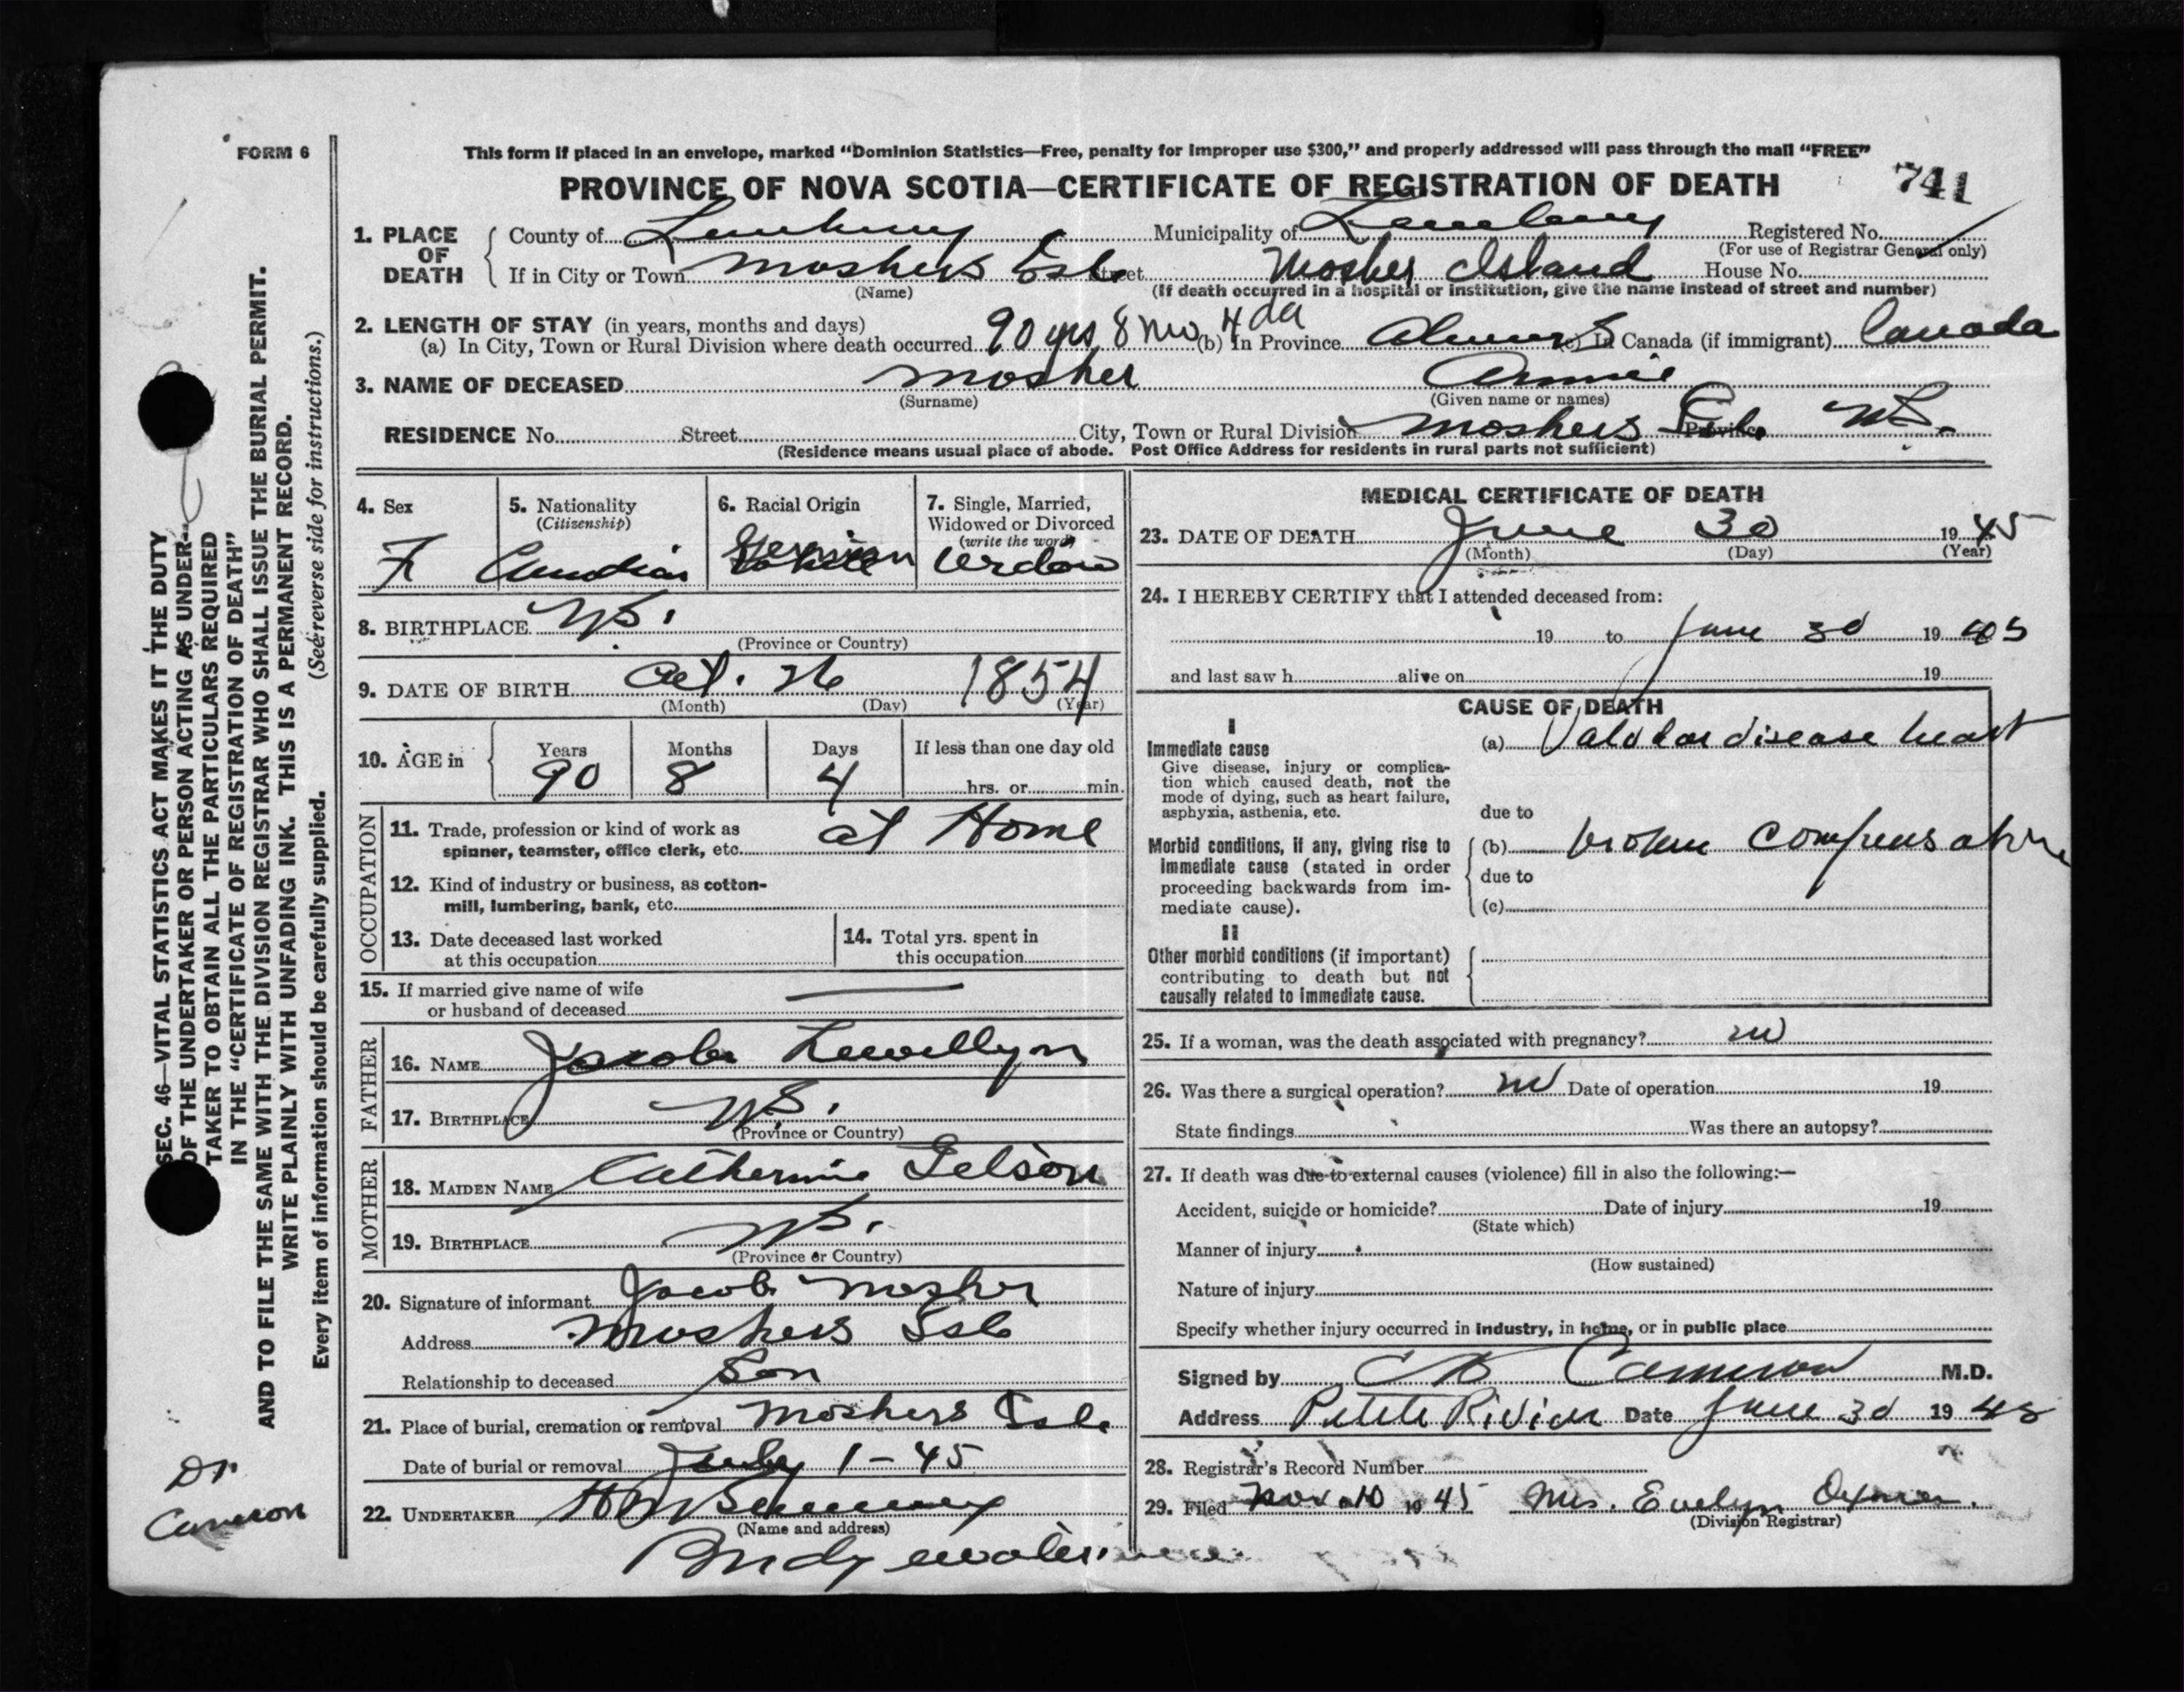 FORM 6
This form if placed in an envelope, marked “Dominion Statistics—Free, penalty for improper use $300,” and properly addressed will pass through the mail “FREE”
PROVINCE OF NOVA SCOTIA—CERTIFICATE OF REGISTRATION OF DEATH 741
1. PLACE OF DEATH
County of Lunenburg Municipality of Lunenburg Registered No.
(For use of Registrar General only)
If in City or Town Moshers Isl. Street Mosher Island House No.
(Name) (If death occurred in a hospital or institution, give the name instead of street and number)
2. LENGTH OF STAY (in years, months and days)
(a) In City, Town or Rural Division where death occurred 90 yrs 8 mo 4 da (b) In Province Always (c) In Canada (if immigrant) Canada
3. NAME OF DECEASED Mosher Annie
(Surname) (Given name or names)
RESIDENCE No. Street City, Town or Rural Division Moshers Isl. Province N.S.
(Residence means usual place of abode. Post Office Address for residents in rural parts not sufficient)
4. Sex F
5. Nationality (Citizenship) Canadian
6. Racial Origin German
7. Single, Married, Widowed or Divorced (write the word) Widow
8. BIRTHPLACE N.S.
(Province or Country)
9. DATE OF BIRTH Oct. 26 1854
(Month) (Day) (Year)
10. AGE in Years 90 Months 8 Days 4 If less than one day old
hrs. or min.
OCCUPATION
11. Trade, profession or kind of work as spinner, teamster, office clerk, etc. at Home
12. Kind of industry or business, as cotton-mill, lumbering, bank, etc.
13. Date deceased last worked at this occupation
14. Total yrs. spent in this occupation
15. If married give name of wife or husband of deceased —
FATHER
16. NAME Jacob Lewellyn
17. BIRTHPLACE N.S.
(Province or Country)
MOTHER
18. MAIDEN NAME Catherine Gelson
19. BIRTHPLACE N.S.
(Province or Country)
20. Signature of informant Jacob Mosher
Address Moshers Isl
Relationship to deceased Son
21. Place of burial, cremation or removal Moshers Isl.
Date of burial or removal July 1 - 45
22. UNDERTAKER
(Name and address)
Bridgewater
MEDICAL CERTIFICATE OF DEATH
23. DATE OF DEATH June 30 1945
(Month) (Day) (Year)
24. I HEREBY CERTIFY that I attended deceased from:
19 to June 30 1945
and last saw h alive on 19
CAUSE OF DEATH
I
Immediate cause
Give disease, injury or complication which caused death, not the mode of dying, such as heart failure, asphyxia, asthenia, etc.
(a) Valvular disease heart
due to
Morbid conditions, if any, giving rise to immediate cause (stated in order proceeding backwards from immediate cause).
(b) broken compensation
due to
(c)
II
Other morbid conditions (if important) contributing to death but not causally related to immediate cause.
25. If a woman, was the death associated with pregnancy? no
26. Was there a surgical operation? no Date of operation 19
State findings Was there an autopsy?
27. If death was due to external causes (violence) fill in also the following:—
Accident, suicide or homicide? Date of injury 19
(State which)
Manner of injury
(How sustained)
Nature of injury
Specify whether injury occurred in industry, in home, or in public place
Signed by Cameron M.D.
Address Petite Riviere Date June 30 1945
28. Registrar's Record Number
29. Filed Nov. 10 1945 Mrs. Evelyn Oxner.
(Division Registrar)
SEC. 46—VITAL STATISTICS ACT MAKES IT THE DUTY
OF THE UNDERTAKER OR PERSON ACTING AS UNDER-
TAKER TO OBTAIN ALL THE PARTICULARS REQUIRED
IN THE “CERTIFICATE OF REGISTRATION OF DEATH”
AND TO FILE THE SAME WITH THE DIVISION REGISTRAR WHO SHALL ISSUE THE BURIAL PERMIT.
WRITE PLAINLY WITH UNFADING INK. THIS IS A PERMANENT RECORD.
Every item of information should be carefully supplied. (See reverse side for instructions.)
Dr
Cameron